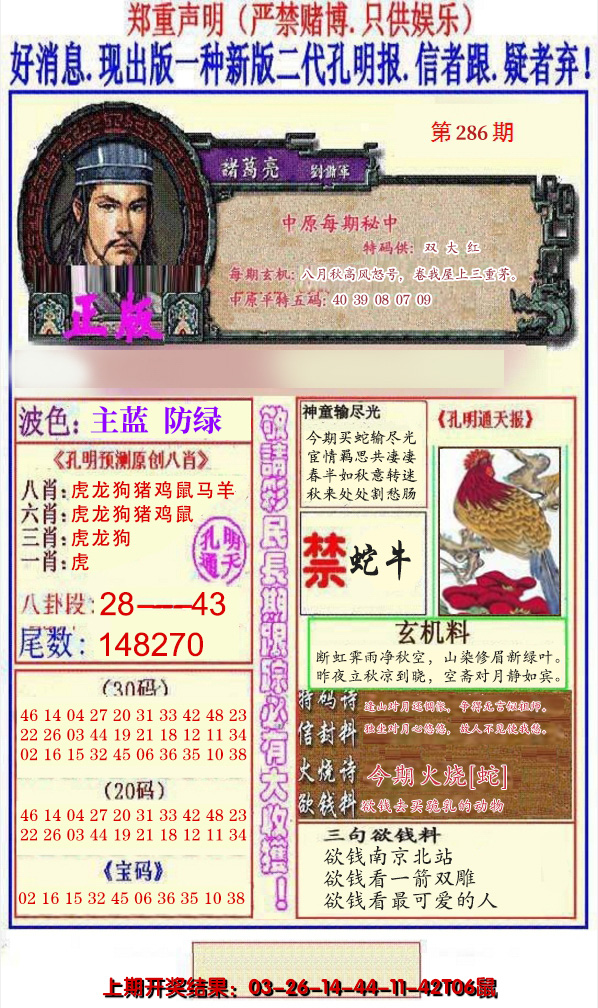 郑重声明（严禁赌博.只供娱乐）
好消息.现出版一种新版二代孔明报.信者跟.疑者弃！
第286期
諸葛亮 劉備軍
中原每期秘中
特码供：双 大 红
每期玄机：八月秋高风怒号，卷我屋上三重茅。
中原平特五码：40 39 08 07 09
正版
波色：主蓝 防绿
《孔明预测原创八肖》
八肖：虎龙狗猪鸡鼠马羊
六肖：虎龙狗猪鸡鼠
三肖：虎龙狗
一肖：虎
孔明通天
八卦段：28——43
尾数：148270
（30码）
46 14 04 27 20 31 33 42 48 23
22 26 03 44 19 21 18 12 11 34
02 16 15 32 45 06 36 35 10 38
（20码）
46 14 04 27 20 31 33 42 48 23
22 26 03 44 19 21 18 12 11 34
《宝码》
02 16 15 32 45 06 36 35 10 38
敬請彩民長期跟踪必有大收獲！
神童输尽光
今期买蛇输尽光
宦情羁思共凄凄
春半如秋意转迷
秋来处处割愁肠
《孔明通天报》
禁 蛇牛
玄机料
断虹霁雨净秋空，山染修眉新绿叶。
昨夜立秋凉到晓，空斋对月静如宾。
特码诗
信封料
独坐对月心悠悠，故人不见使我愁。
火烧诗 今期火烧[蛇]
欲钱料 欲钱去买驼乳的动物
三句欲钱料
欲钱南京北站
欲钱看一箭双雕
欲钱看最可爱的人
上期开奖结果：03-26-14-44-11-42T06鼠